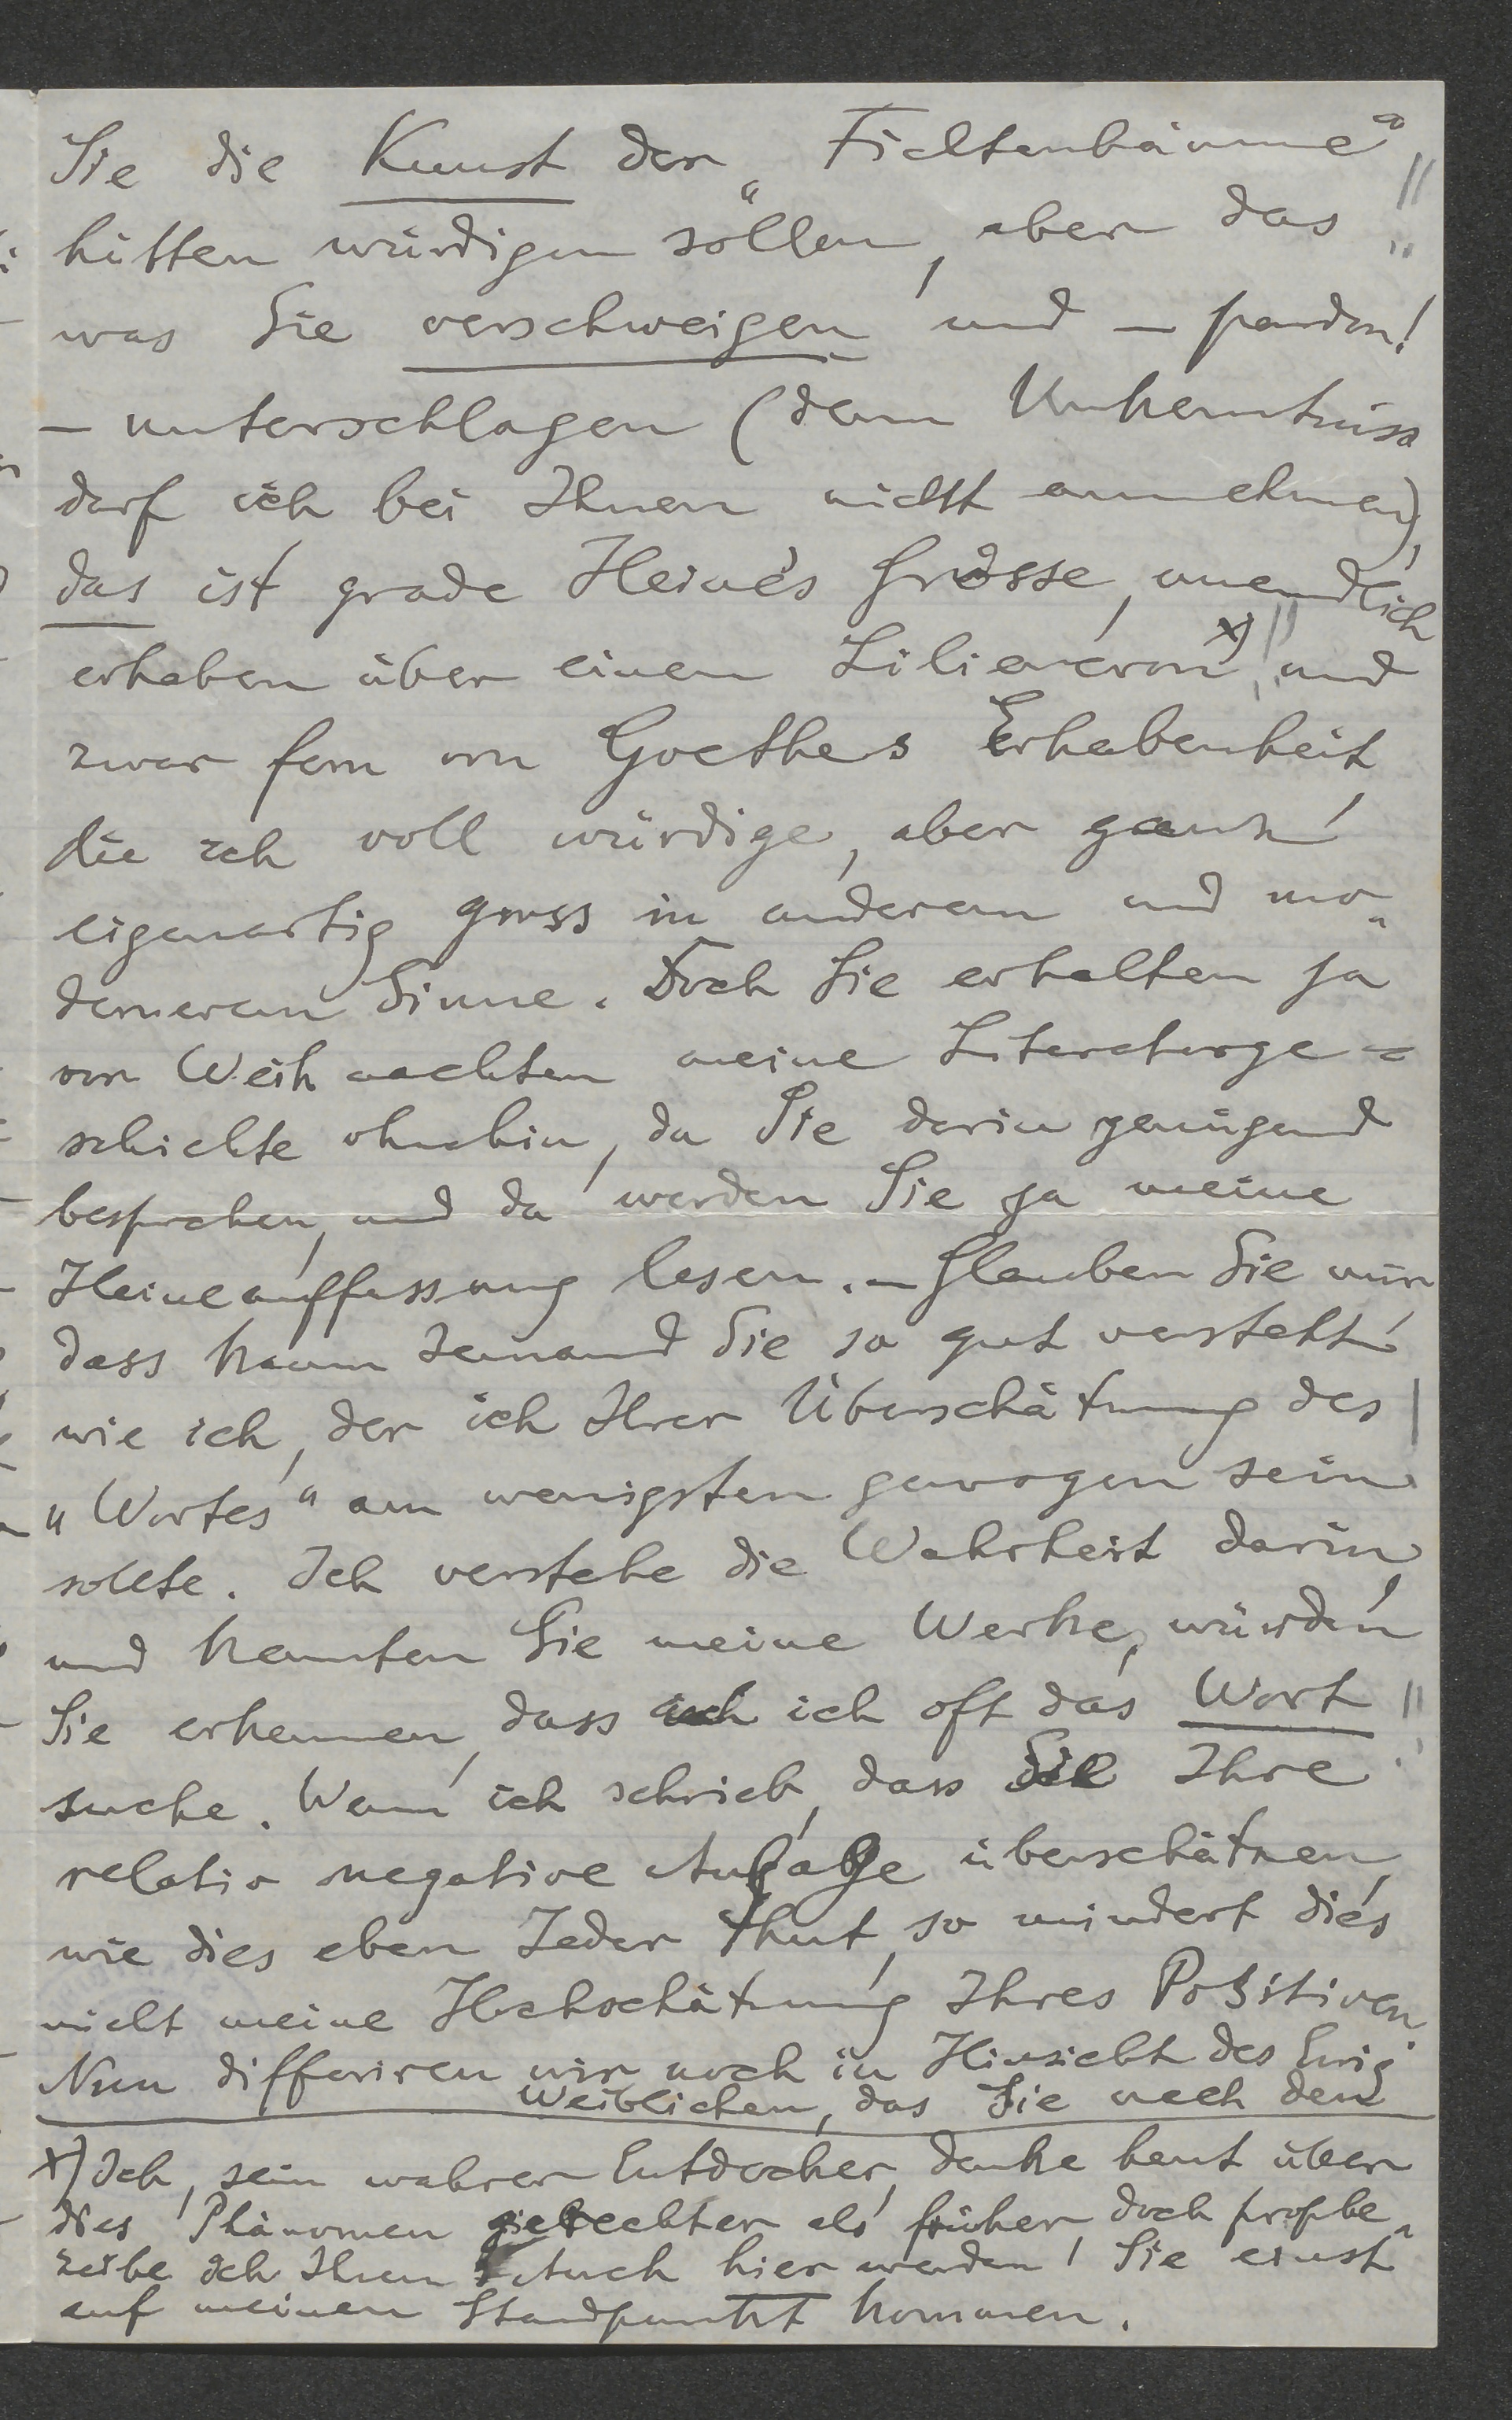 Sie die Kunst der „Fichtenbäume“
hätten würdigen sollen, aber das
was Sie verschweigen und – pardon!
– unterschlagen (denn Unkenntniss
darf ich bei Ihnen nicht annehmen),
das ist grade Heine's Grösse, unendlich
erhaben über einen Liliencron x), und
zwar fern von Goethes Erhabenheit
die ich voll würdige, aber ganz
eigenartig gross in anderem und mo-
dernerem Sinne. Doch Sie erhalten ja
vor Weihnachten meine Literaturge-
schichte ohnehin, da Sie darin genügend
besprochen, und da werden Sie ja meine
Heineauffassung lesen. – Glauben Sie nur
dass kaum Jemand Sie so gut versteht
wie ich, der ich Ihrer Überschätzung des
„Wortes“ am wenigsten gewogen sein
sollte. Ich verstehe die Wahrheit darin,
und kennten Sie meine Werke, würden
Sie erkennen, dass auch ich oft das Wort
suche. Wenn ich schrieb, dass Sie Ihre
relativ negative Aufgabe überschätzen,
wie dies eben Jeder thut, so mindert dies
nicht meine Hochschätzung Ihres Positiven.
Nun differiren wir noch in Hinsicht des Ewig
Weiblichen, das Sie nach dem
x) Ich, sein wahrer Entdecker, denke heut über
dies Phänomen gerechter als früher, doch prophe-
zeihe ich Ihnen Auch hier werden Sie einst
auf meinen Standpunkt kommen.